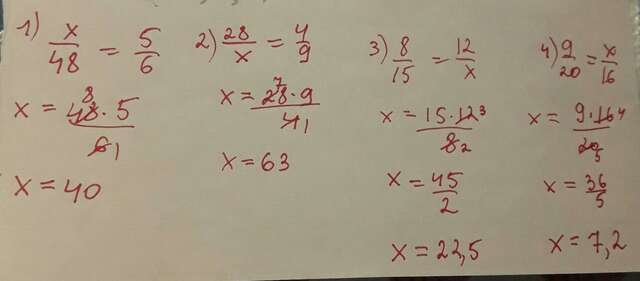 1) x/48 = 5/6
x = 48 8 · 5 / 6 1
x = 40
2) 28/x = 4/9
x = 28 7 · 9 / 4 1
x = 63
3) 8/15 = 12/x
x = 15 · 12 3 / 8 2
x = 45/2
x = 22,5
4) 9/20 = x/16
x = 9 · 16 4 / 20 5
x = 36/5
x = 7,2